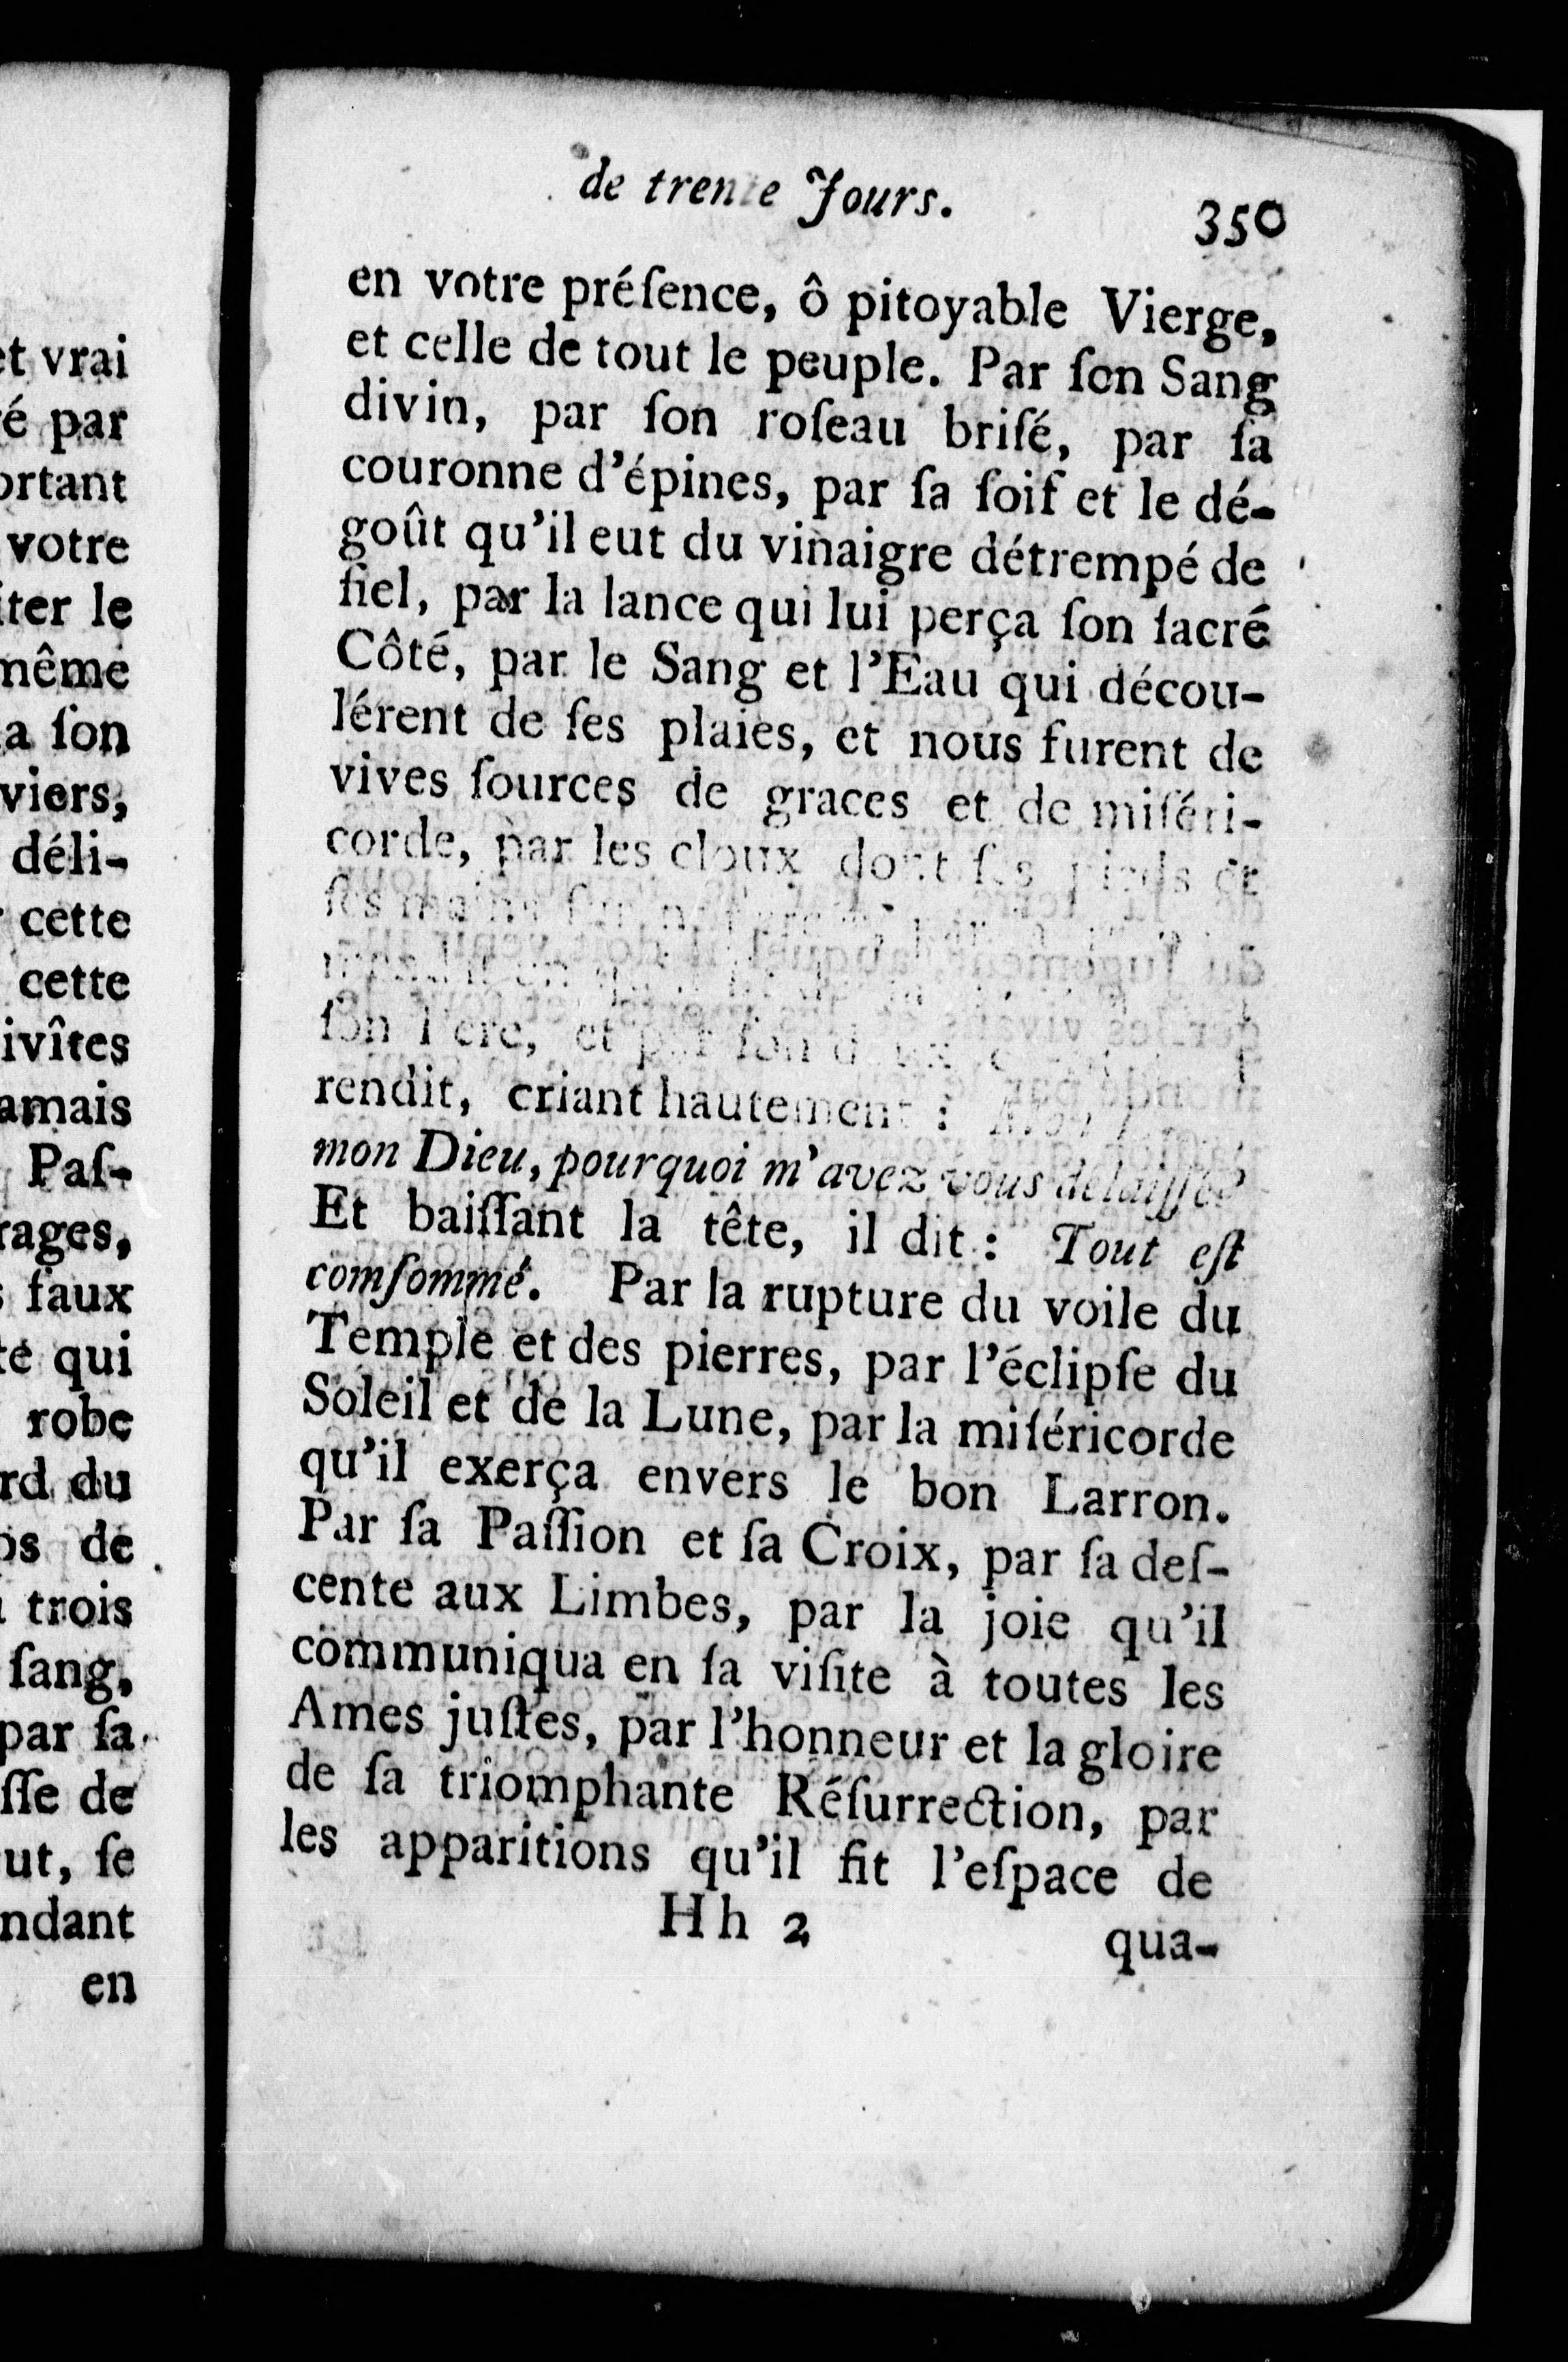 et vrai
é par
ortant
votre
iter le
même
a ſon
viers,
déli-
cette
cette
ivîtes
amais
Paſ-
rages,
faux
te qui
robe
rd du
os de
trois
ſang,
par ſa
ſſe de
ut, ſe
ndant
en
de trente Jours.
350
en votre préſence, ô pitoyable Vierge,
et celle de tout le peuple. Par ſon Sang
divin, par ſon roſeau briſé, par ſa
couronne d'épines, par ſa ſoif et le dé-
goût qu'il eut du vinaigre détrempé de
fiel, par la lance qui lui perça ſon ſacré
Côté, par le Sang et l'Eau qui décou-
lérent de ſes plaies, et nous furent de
vives ſources de graces et de miſéri-
corde, par les cloux dont ſes pieds et
ſes mains
ſon Pere, et par ſon
rendit, criant hautement :
mon Dieu, pourquoi m'avez vous délaiſſé?
Et baiſſant la tête, il dit : Tout eſt
comſommé. Par la rupture du voile du
Temple et des pierres, par l'éclipſe du
Soleil et de la Lune, par la miſéricorde
qu'il exerça envers le bon Larron.
Par ſa Paſſion et ſa Croix, par ſa deſ-
cente aux Limbes, par la joie qu'il
communiqua en ſa viſite à toutes les
Ames juſtes, par l'honneur et la gloire
de ſa triomphante Réſurrection, par
les apparitions qu'il fit l'eſpace de
Hh 2
qua-